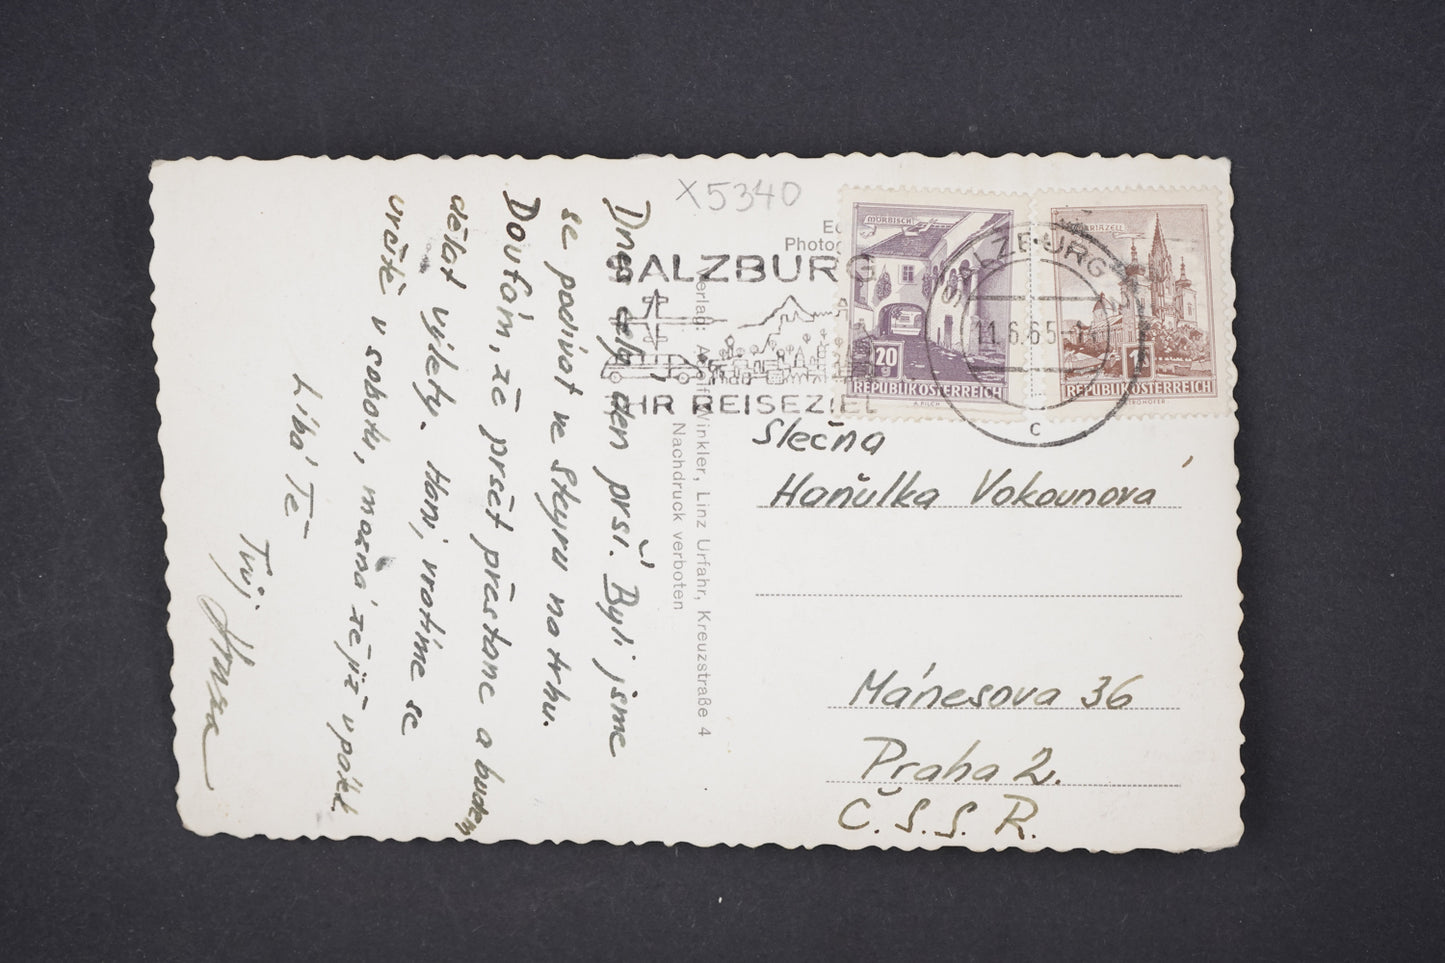 Dnes celý den prší. Byli jsme
se podívat ve Steyru na trhu.
Doufám, že pršet přestane a budem
dělat výlety. Hani, vrátíme se
určitě v sobotu, možná že již v pátek.
Líbá Tě
Tvůj
X5340
Photog
Verlag: Adolf Winkler, Linz Urfahr, Kreuzstraße 4
Nachdruck verboten
SALZBURG
IHR REISEZIEL
MÖRBISCH
20 g
REPUBLIK ÖSTERREICH
A. PILCH
MARIAZELL
REPUBLIK ÖSTERREICH
SALZBURG
11.6.65
c
Slečna
Haňulka Vokounova
Mánesova 36
Praha 2.
Č.S.S.R.